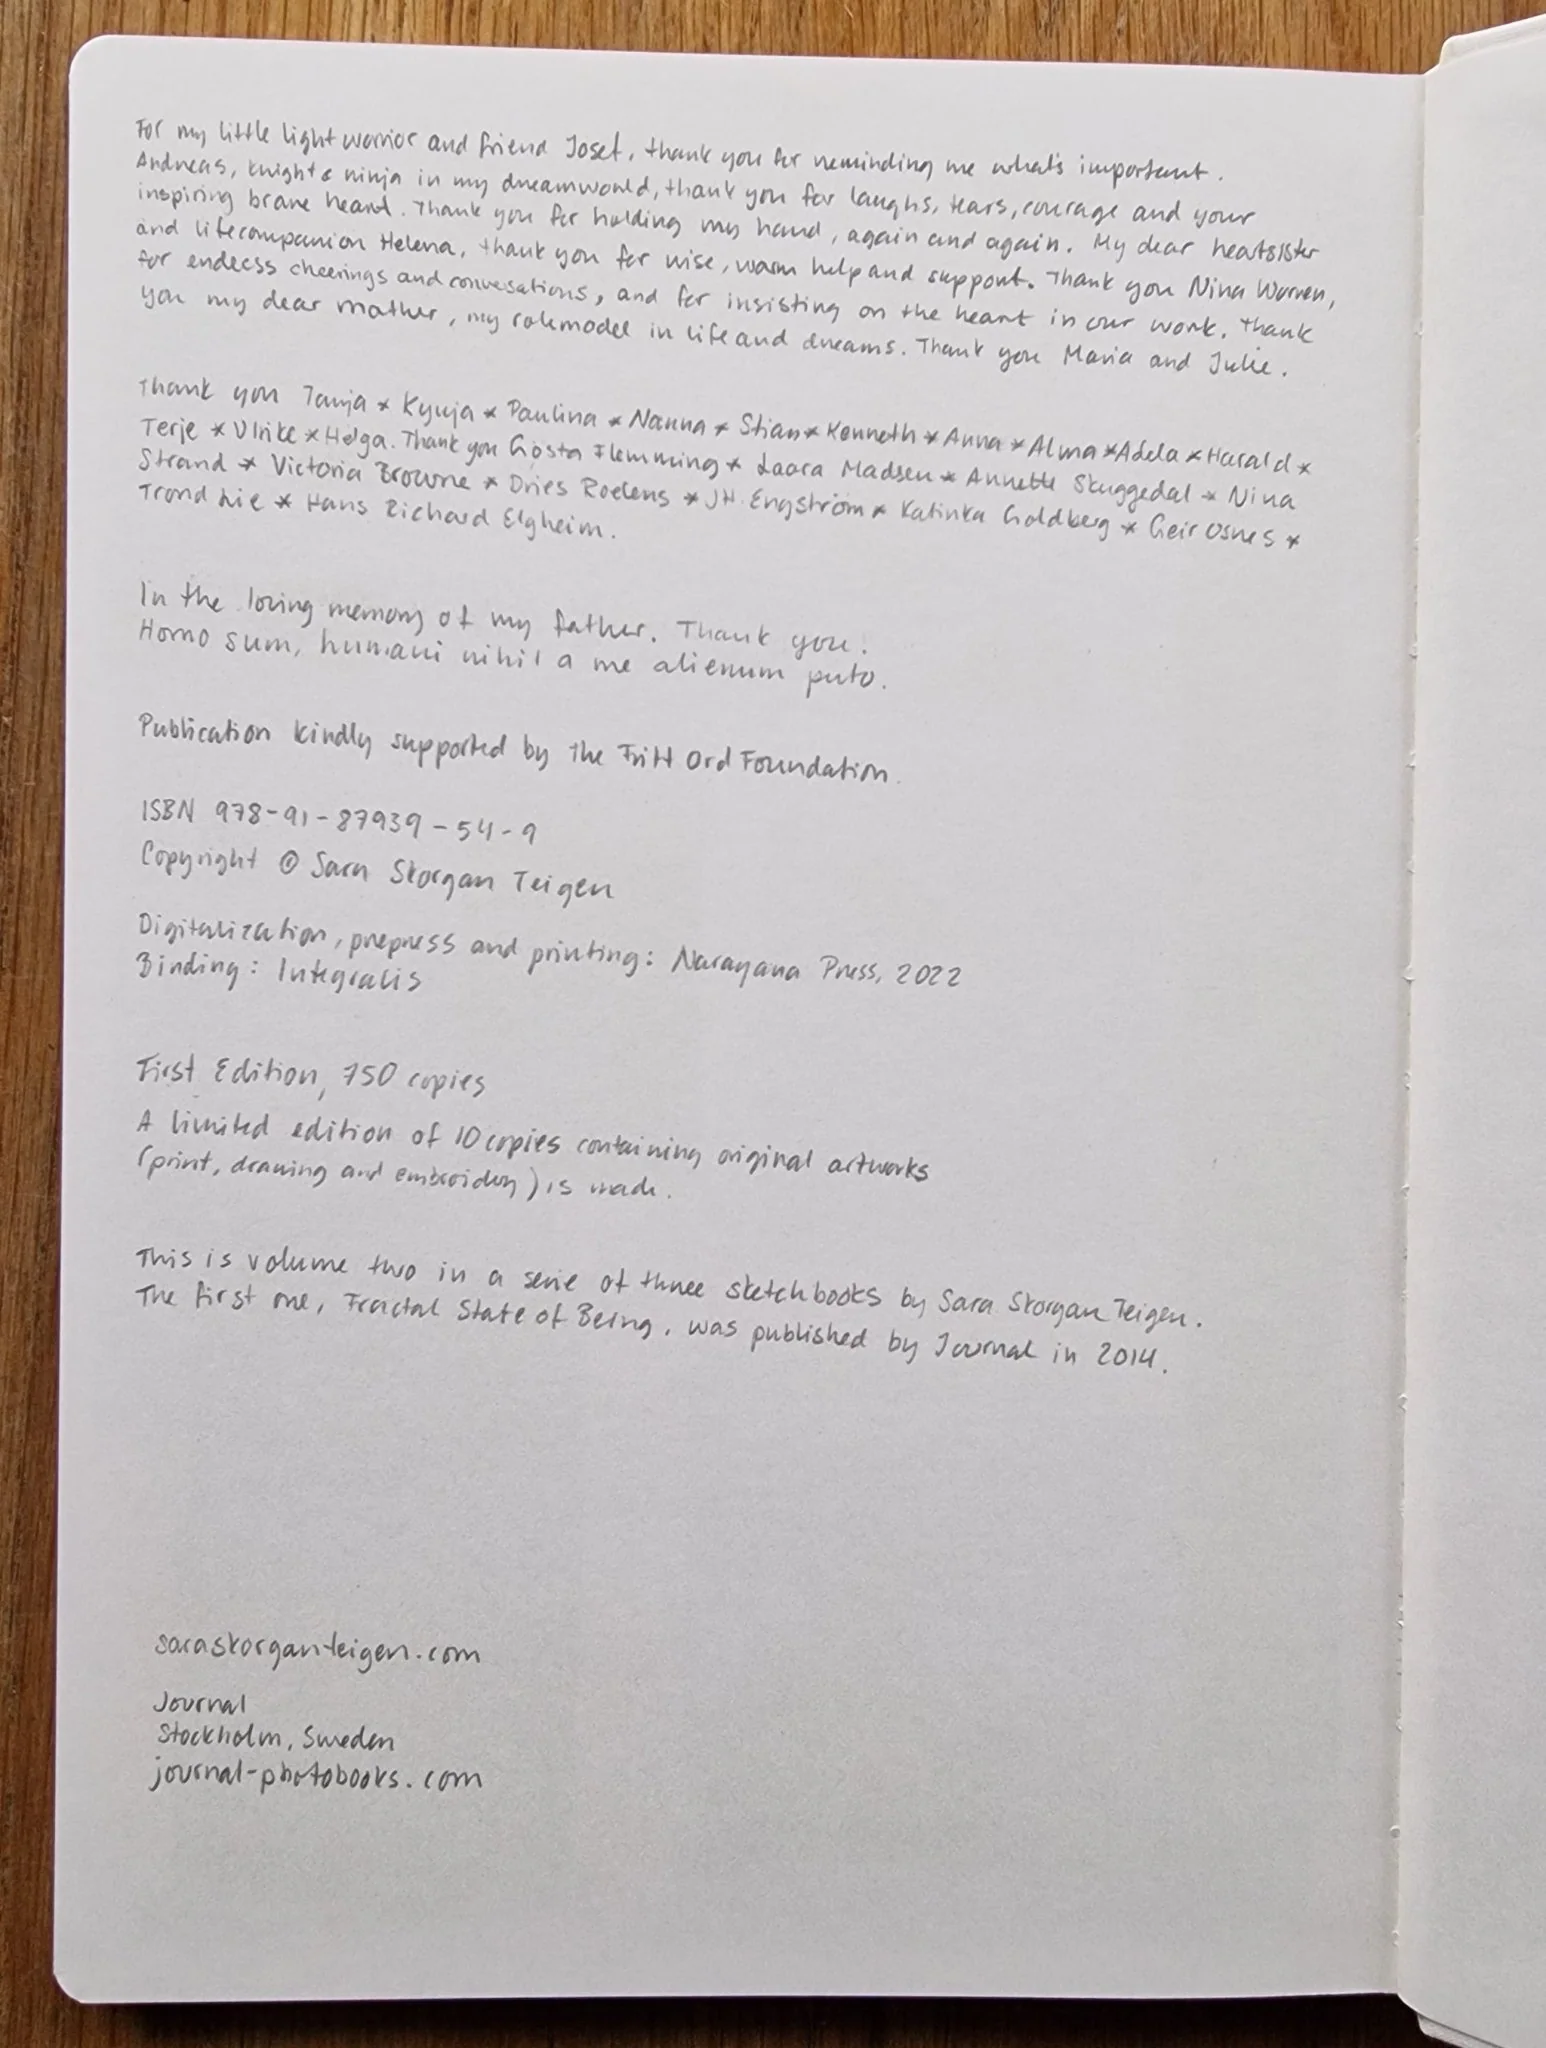 For my little light warrior and friend Josef, thank you for reminding me what's important.
Andreas, knight & ninja in my dreamworld, thank you for laughs, tears, courage and your
inspiring brave heart. Thank you for holding my hand, again and again. My dear heatsister
and lifecompanion Helena, thank you for wise, warm help and support. Thank you Nina Worren,
for endless cheerings and conversations, and for insisting on the heart in our work. Thank
you my dear mother, my rolemodel in life and dreams. Thank you Maria and Julie.
Thank you Tanja * Kyuja * Paulina * Nanna * Stian * Kenneth * Anna * Alma * Adela * Harald *
Terje * Ulrike * Helga. Thank you Gösta Flemming * Laara Madsen * Annette Skuggedal * Nina
Strand * Victoria Browne * Dries Roelens * JH Engström * Katinka Goldberg * Geir Osnes *
Trond Lie * Hans Richard Elgheim.
In the loving memory of my father. Thank you!
Homo sum, humani nihil a me alienum puto.
Publication kindly supported by The Fritt Ord Foundation.
ISBN 978-91-87939-54-9
Copyright © Sara Skorgan Teigen
Digitalization, prepress and printing: Narayana Press, 2022
Binding: Integralis
First Edition, 750 copies
A limited edition of 10 copies containing original artworks
(print, drawing and embroidery) is made.
This is volume two in a serie of three sketchbooks by Sara Skorgan Teigen.
The first one, Fractal State of Being, was published by Journal in 2014.
saraskorganteigen.com
Journal
Stockholm, Sweden
journal-photobooks.com